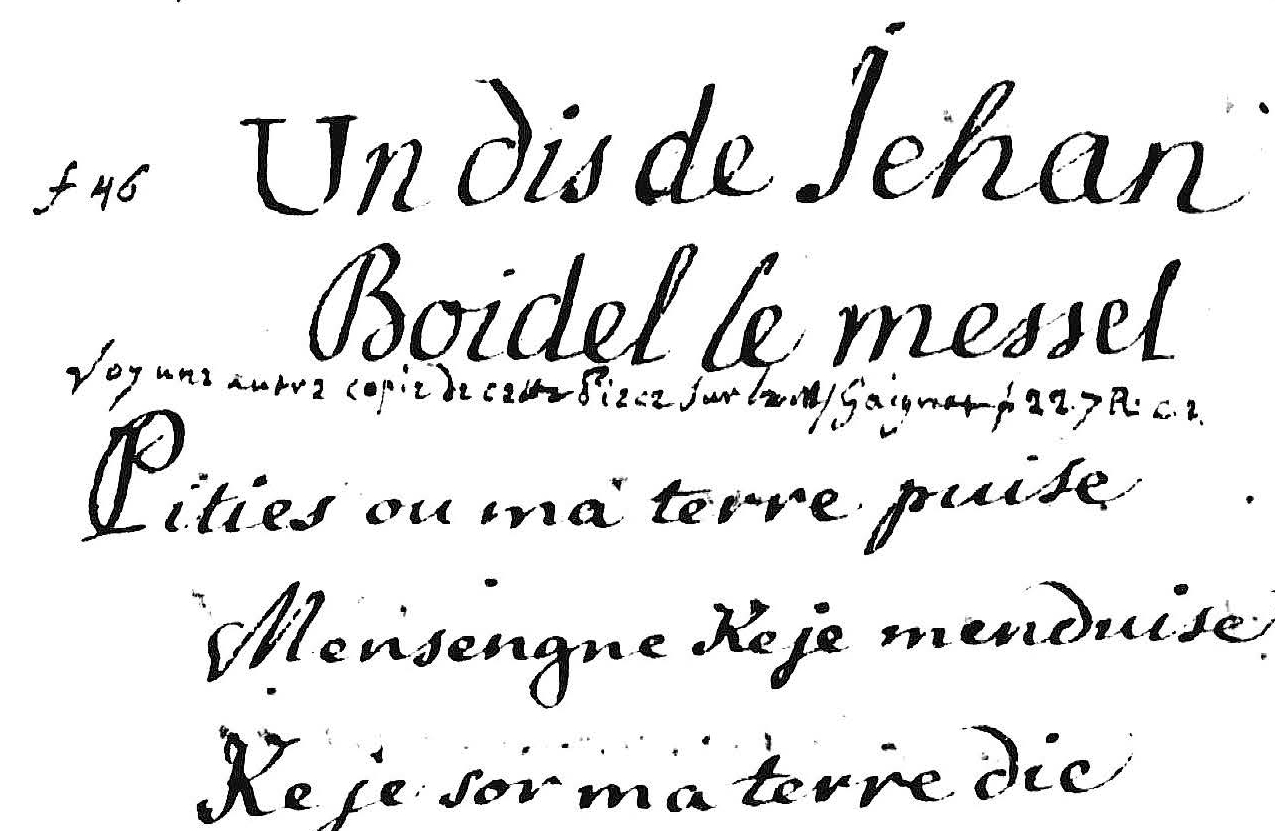 f 46 Un dis de Jehan
Boidel le messel
Voy une autre copie de cette Piece sur le mss Gaignat p 227 R. c. 2.
Pities ou ma terre puise
Mensengne Ke je menduise
Ke je sor ma terre die